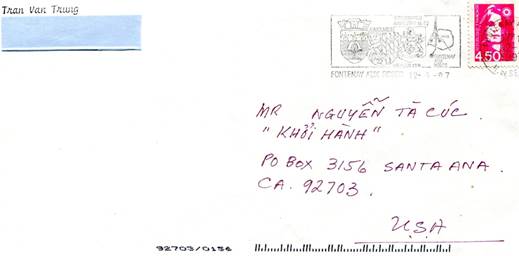 Tran Van Trung
FONTENAY AUX ROSES
4,50
MR NGUYỄN TÀ CÚC.
"KHỞI HÀNH"
PO BOX 3156 SANTA ANA.
CA. 92703.
U.S.A
92703/0156